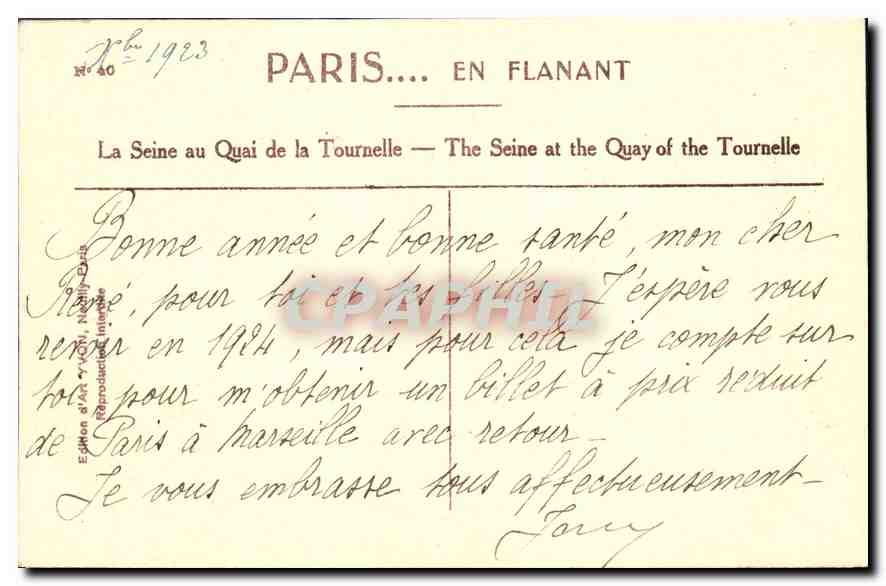 Xbre 1923
N° 40
PARIS.... EN FLANANT
La Seine au Quai de la Tournelle — The Seine at the Quay of the Tournelle
Bonne année et bonne santé, mon cher
René, pour toi et tes filles. J'espère vous
revoir en 1924, mais pour cela je compte sur
toi, pour m'obtenir un billet à prix réduit
de Paris à Marseille avec retour —
Je vous embrasse tous affectueusement —
Edition d'Art YVON, Neuilly-Paris
Reproduction Interdite
CPAPHIL